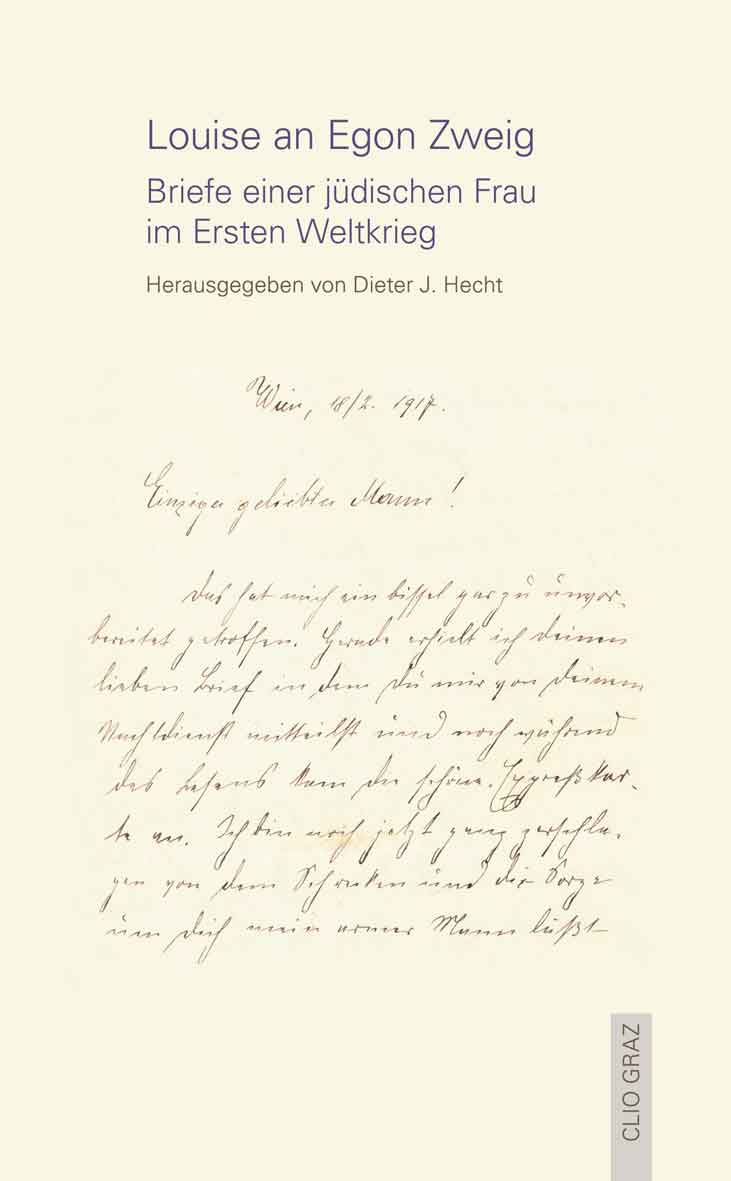 Louise an Egon Zweig
Briefe einer jüdischen Frau
im Ersten Weltkrieg
Herausgegeben von Dieter J. Hecht
Wien, 18/2. 1917.
Einziger geliebter Mann!
Das hat mich ein bissel gar zu unvor-
bereitet getroffen. Gerade erhielt ich deinen
lieben Brief in dem Du mir von deinem
Nachtdienst mitteilst und noch während
des Lesens kam die schöne Expreßkar-
te an. Ich bin noch jetzt ganz zerschla-
gen von dem Schrecken und die Sorge
um Dich mein armer Mann läßt
CLIO GRAZ